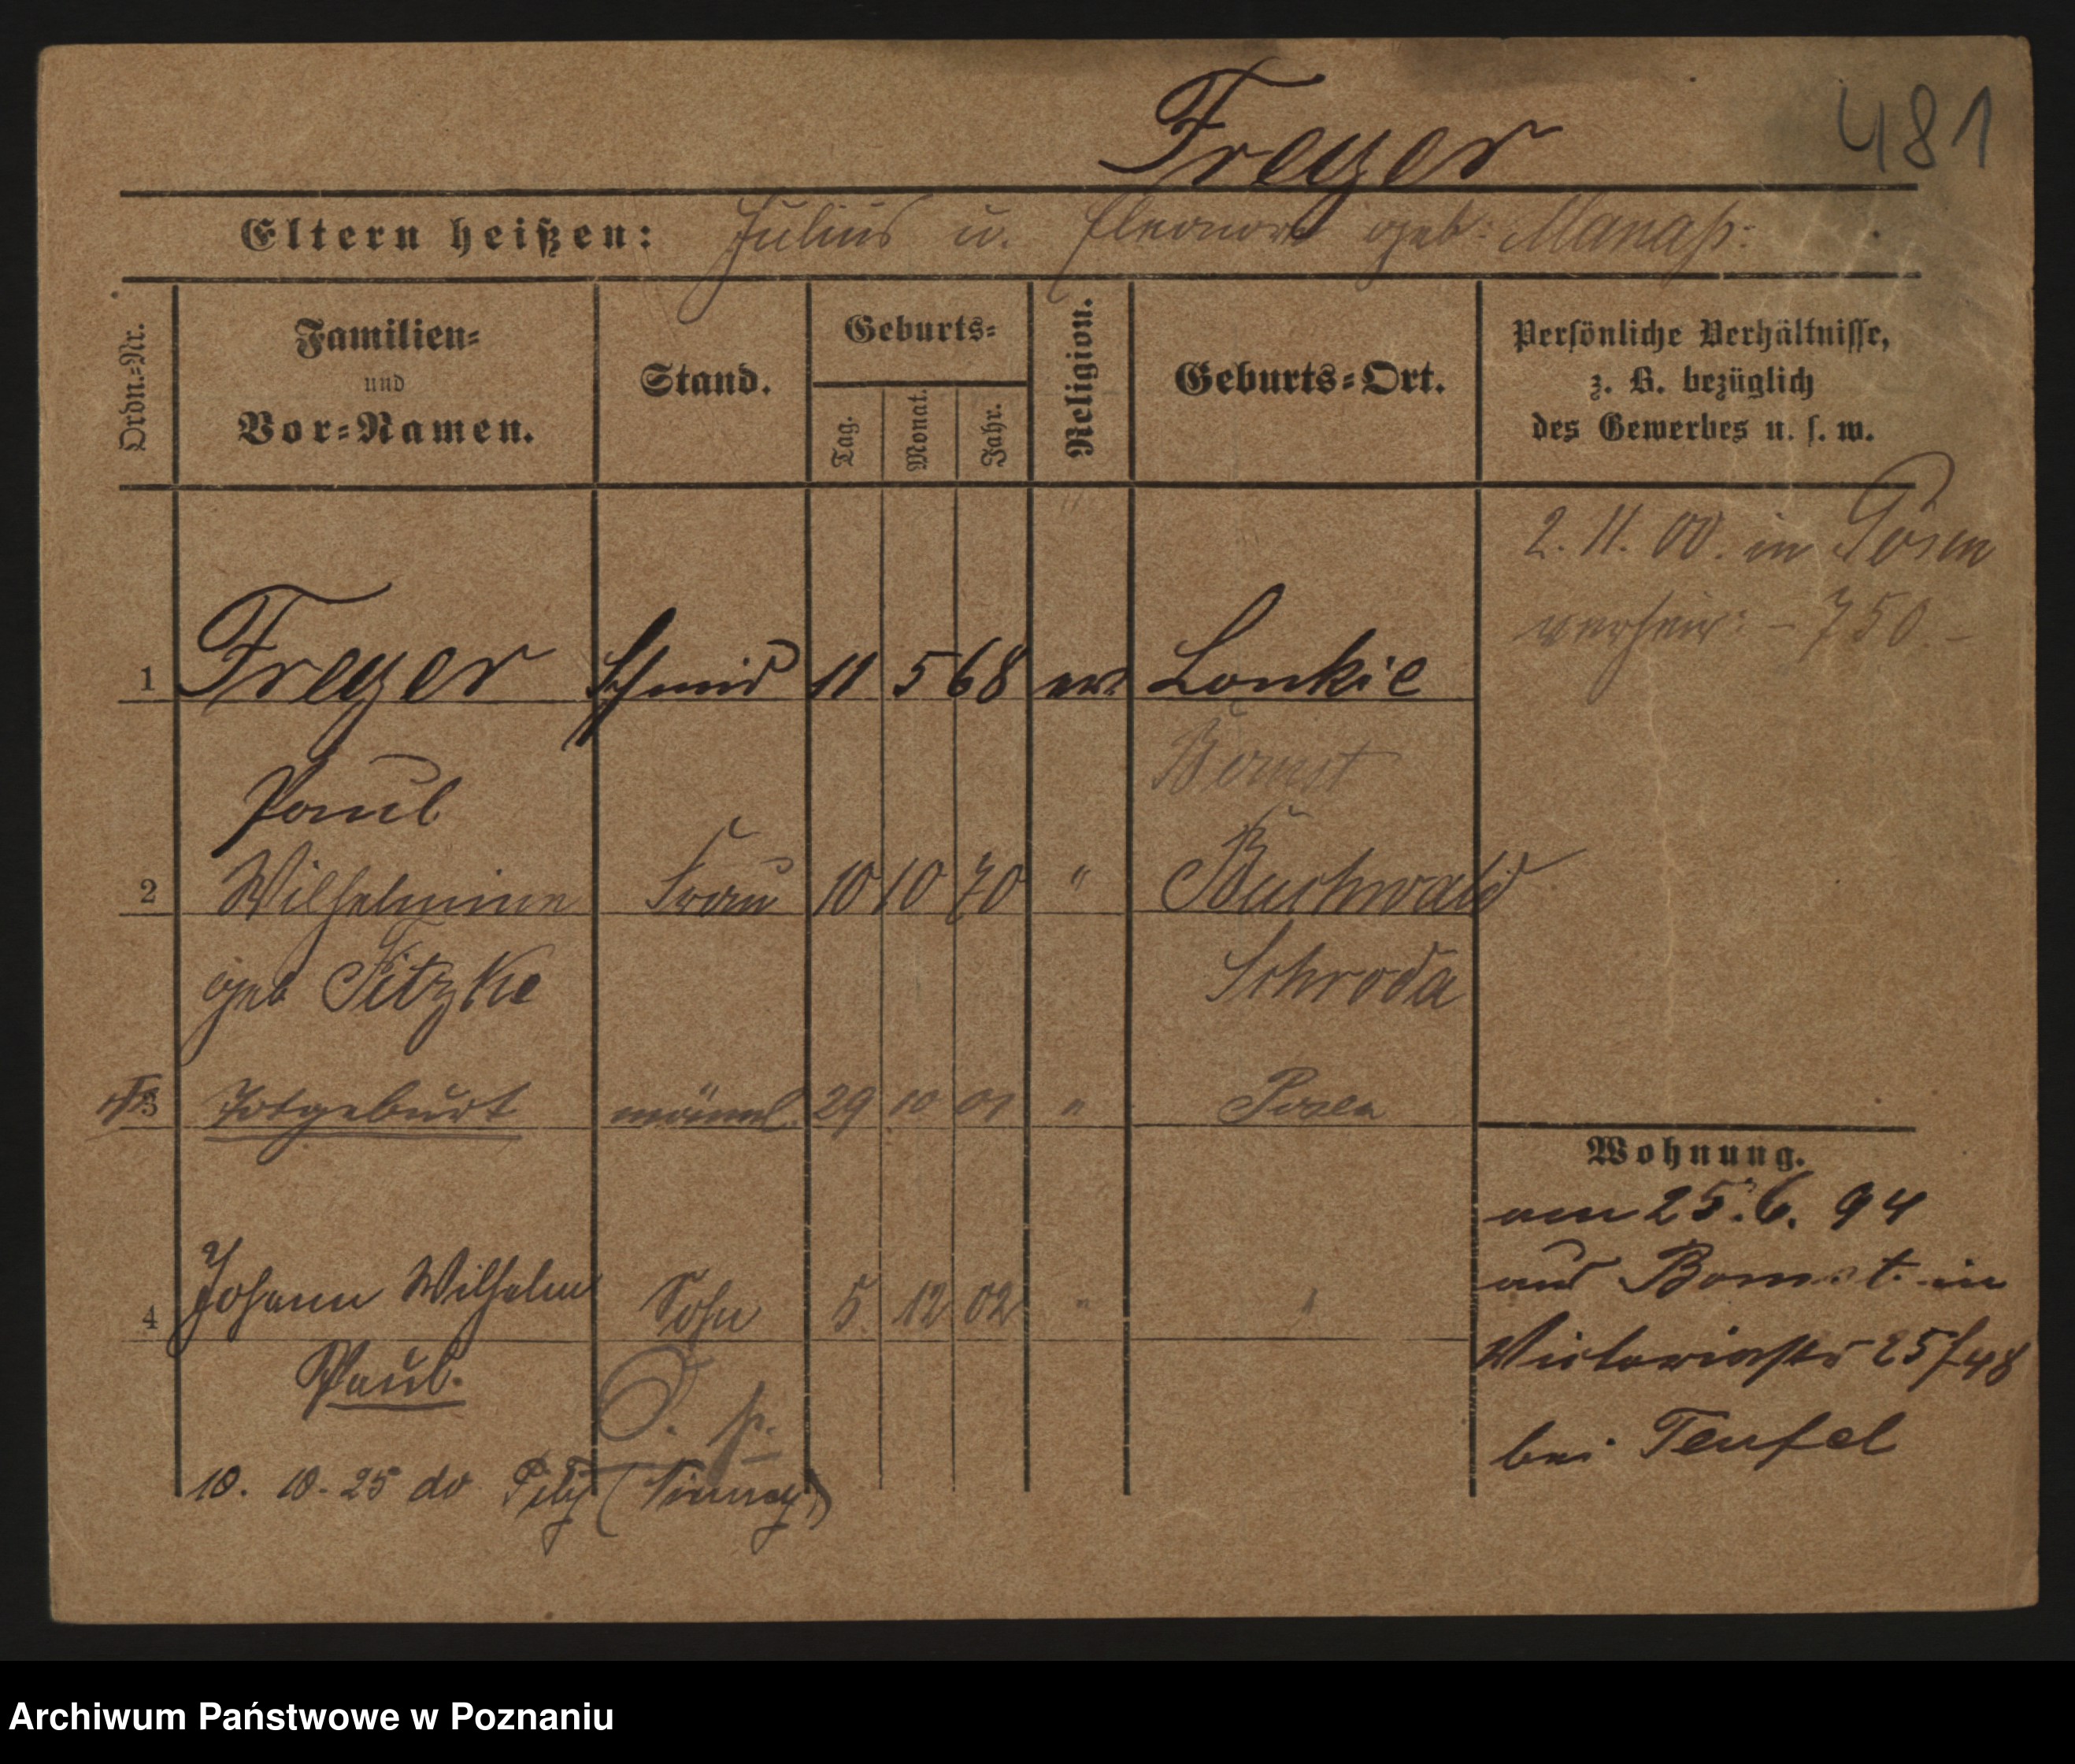 481
Freyer
Eltern heißen: Julius u. Eleonore geb: Manaß:
Ordn.=Nr.
Familien=
und
Vor=Namen.
Stand.
Geburts=
Tag.
Monat.
Jahr.
Religion.
Geburts=Ort.
Persönliche Verhältnisse,
z. B. bezüglich
des Gewerbes u. s. w.
2. 11. 00. in Posen
verheir: - 750 -
1 Freyer Schmid 11 5 68 ev. Lonkie
Bomst
Paul
2 Wilhelmine Frau 10 10 70 " Buchwald
geb Fitzke Schroda
3 Totgeburt männl. 29 10 01 " Posen
4 Johann Wilhelm Sohn 5 12 02 " "
Paul.
10. 10. 25 do
Wohnung.
am 25. 6. 94
aus Bomst in
Victoriastr 25/48
bei Teufel
Archiwum Państwowe w Poznaniu